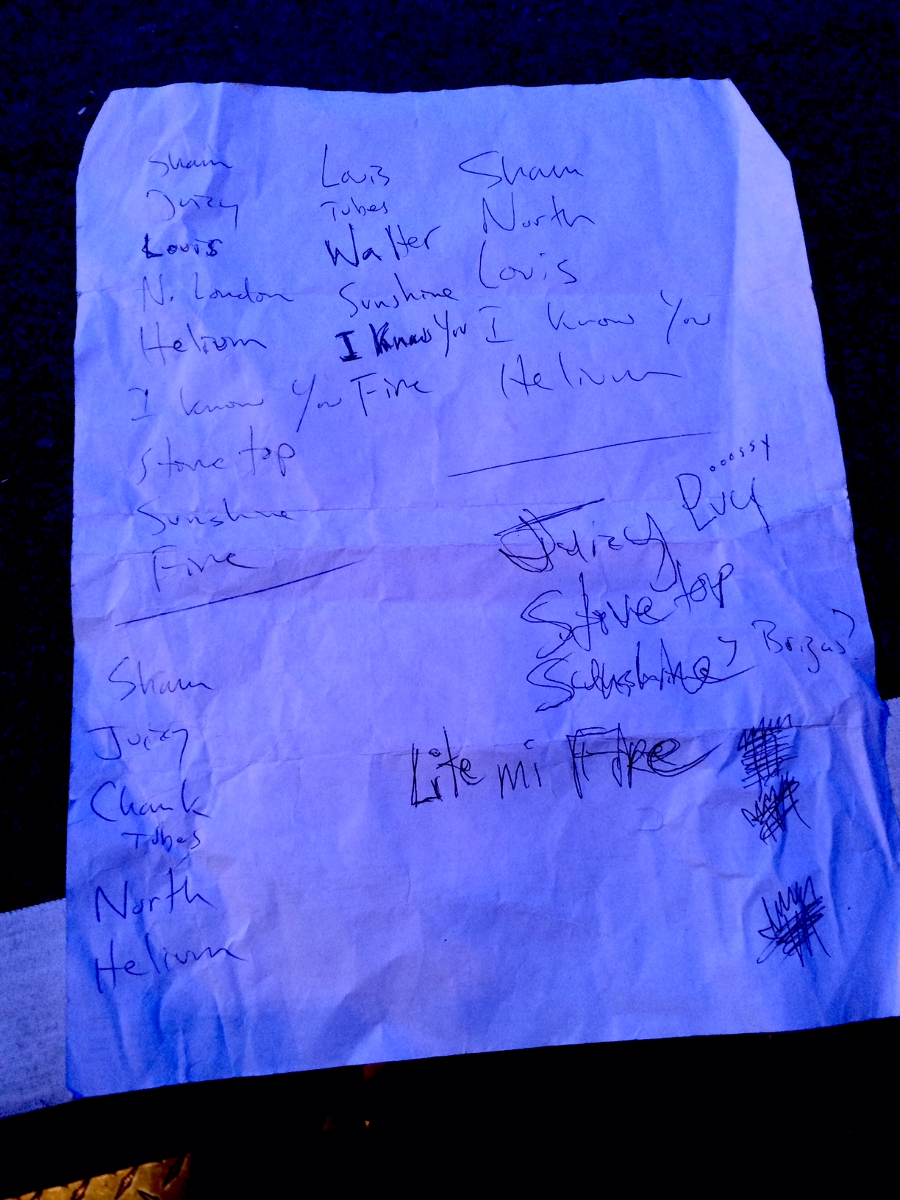 Sham
Juizy
Louis
N. London
Helium
I know You
Stove top
Sunshine
Fire
Louis
Tubes
Walter
Sunshine
I Know You
Fire
Sham
North
Louis
I know You
Helium
Sham
Juizy
Chank
Tubes
North
Helium
ooossy
Juizy
Stove top
Sunshine
Lite mi Fire